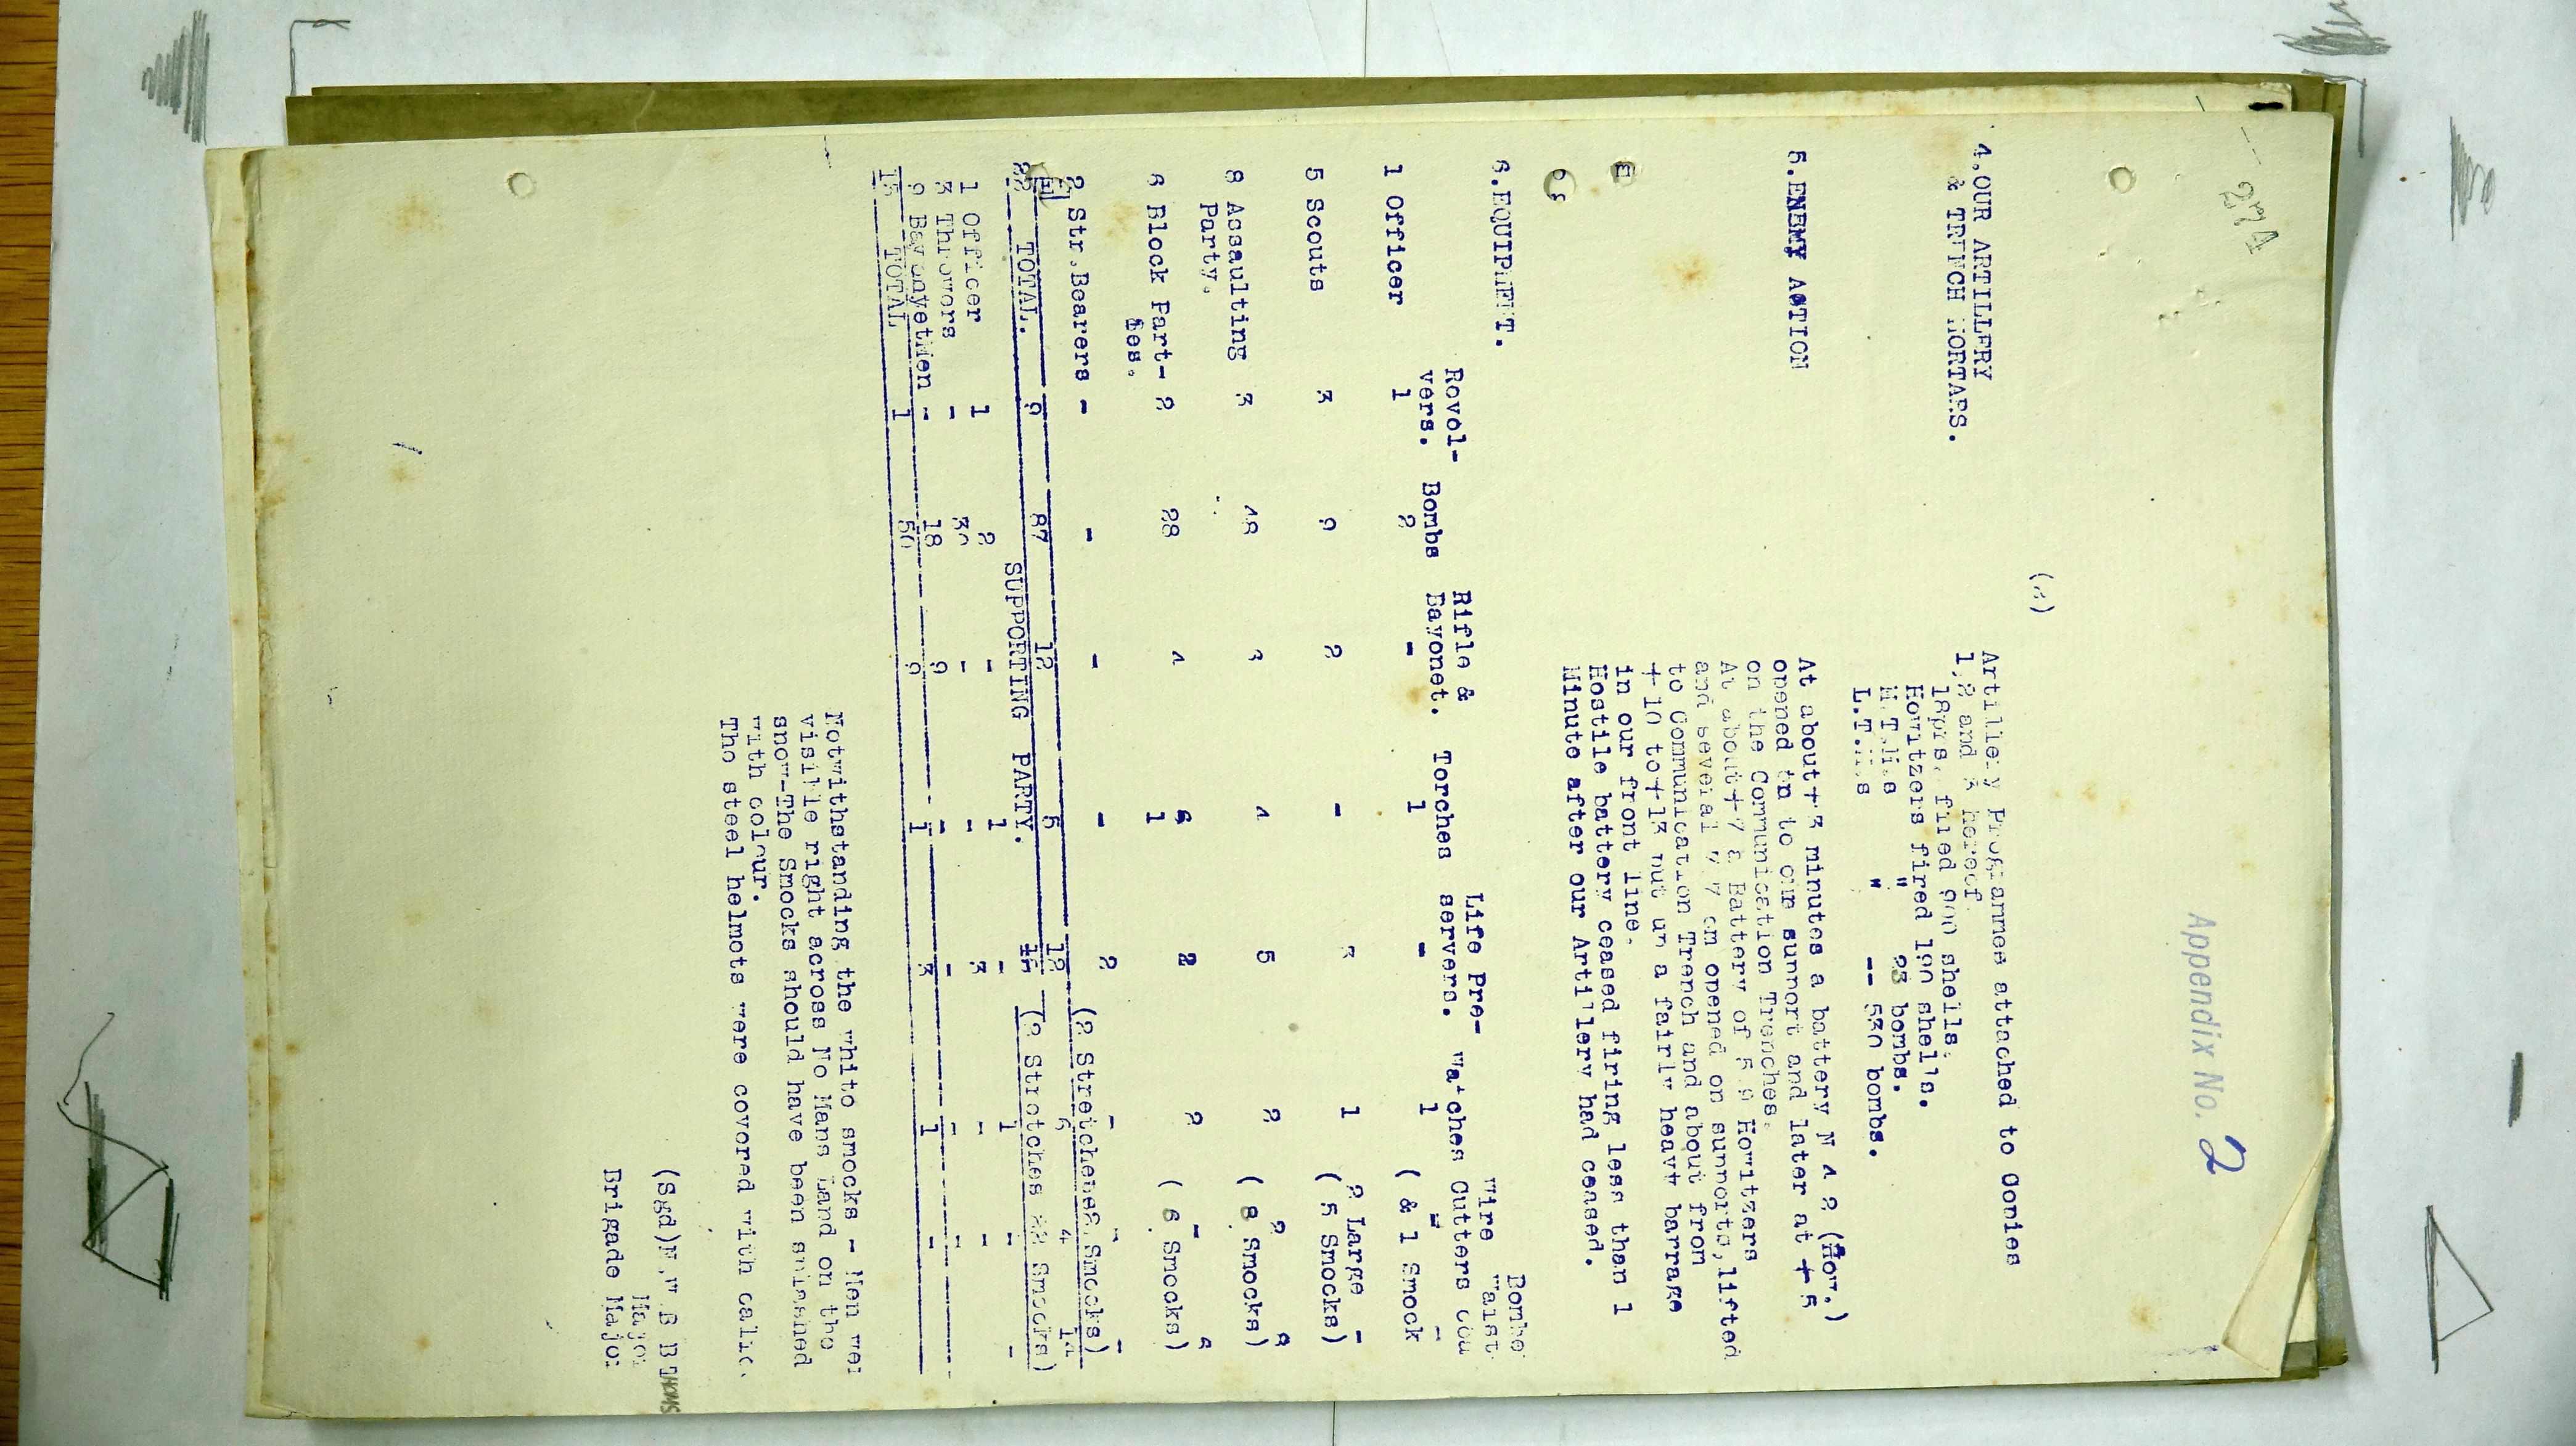 274
Appendix No. 2
4.OUR ARTILLERY
& TRENCH MORTARS.
Artillery Programmes attached to Copies
1,2 and 3 hereof.
18prs. fired 900 shells.
Howitzers fired 190 shells.
M.T.M.s " 23 bombs.
L.T.M.s " -- 530 bombs.
5.ENEMY ACTION
At about + 3 minutes a battery N 4 2 (How.)
opened on to our support and later at + 5
on the Communication Trenches.
At about + 7 a Battery of 5.9 Howitzers
and several 7.7 cm opened on supports, lifted
to Communication Trench and about from
+ 10 to + 13 put up a fairly heavy barrage
in our front line.
Hostile battery ceased firing less than 1
Minute after our Artillery had ceased.
6.EQUIPMENT.
Revol-vers. Bombs Rifle & Bayonet. Torches Life Pre-servers. Watches Wire Cutters Bombs Waist
1 Officer 1 2 - 1 - 1 - ( & 1 Smock
5 Scouts 3 9 2 - 3 1 2 Large - ( 5 Smocks)
8 Assaulting Party. 3 48 3 4 5 2 2 8 ( 8 Smocks)
6 Block Part- 2 28 4 1 2 2 - 6 ( 6 Smocks)
ies.
2 Str.Bearers - - - - 2 - - - (2 Stretchers, Smocks)
22 TOTAL. 9 87 12 6 12 6 4 14
(2 Stretches 22 Smocks)
SUPPORTING PARTY.
1 Officer 1 2 - 1 - 1 - -
3 Throwers - 30 - - 3 - -
9 Bayonetmen - 18 9 - - - -
13 TOTAL 1 50 9 1 3 1 -
Notwithstanding the white smocks - Men were
visible right across No Mans Land on the
snow-The Smocks should have been
with colour.
The steel helmets were covered with calico
(Sgd)N.W. B B THOMS
Major
Brigade Major